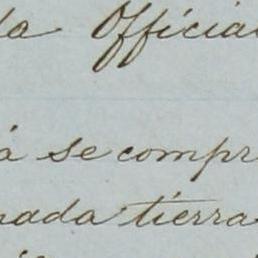 da Official
á se compr
nada tierra